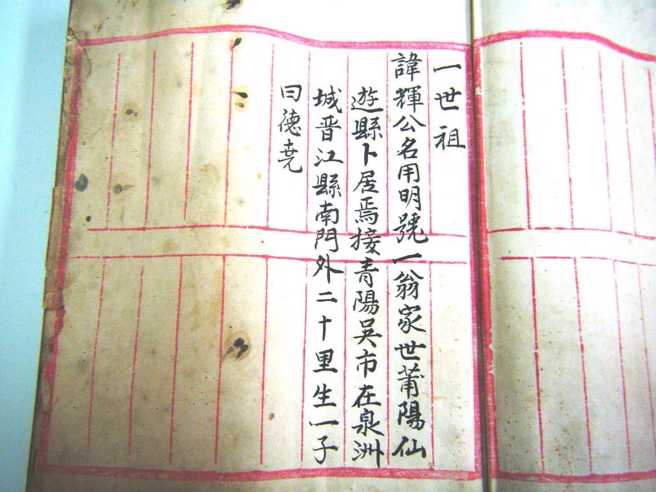 一世祖
諱輝公名用明號一翁家世莆陽仙
遊縣卜居焉接青陽吳市在泉洲
城晋江縣南門外二十里生一子
曰德尭